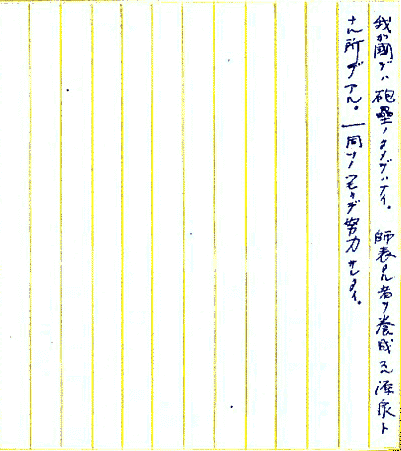 我が國デハ砲壘ノタメデハナイ。師表タル者ヲ養成スル源泉ト
ナル所デアル。一同ソノツモリデ努力サレタイ。